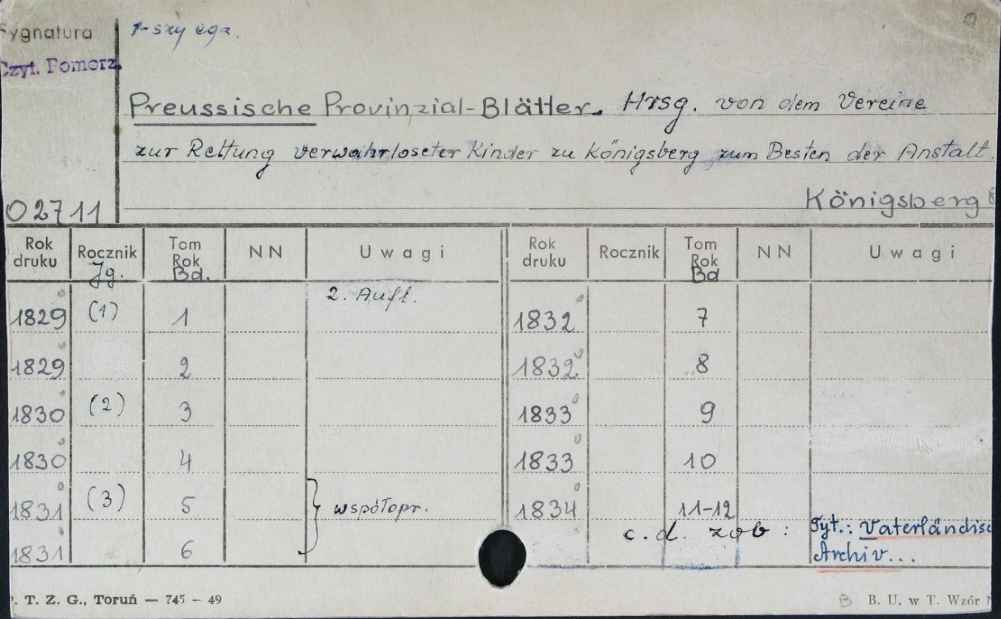 Sygnatura 1-szy egz.
Czyt. Pomorz.
Preussische Provinzial-Blätter. Hrsg. von dem Vereine
zur Rettung verwahrloseter Kinder zu Königsberg zum Besten der Anstalt.
02711 Königsberg
Rok druku Rocznik Jg. Tom Rok Bd. NN Uwagi Rok druku Rocznik Tom Rok Bd NN Uwagi
1829 (1) 1 2. Aufl. 1832 7
1829 2 1832 8
1830 (2) 3 1833 9
1830 4 1833 10
1831 (3) 5 współopr. 1834 11-12
1831 6 c.d. zob: Tyt.: Vaterländisc
Archiv...
. T. Z. G., Toruń — 745 - 49 B B. U. w T. Wzór